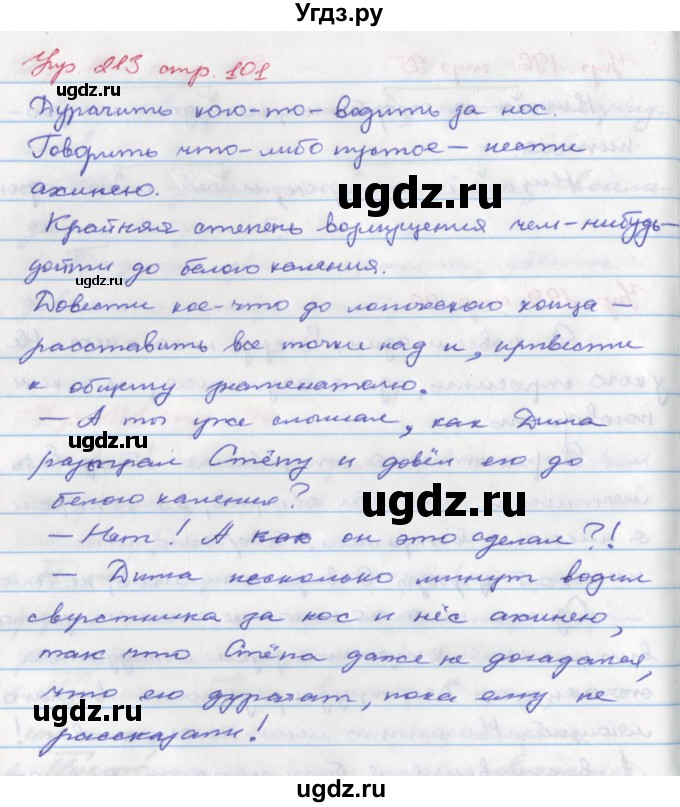 Угдз.ру
Упр. 213 стр. 101
Дурачить кого-то - водить за нос.
Говорить что-либо пустое - нести
ахинею.
Крайняя степень возмущения чем-нибудь -
дойти до белого каления.
Довести кое-что до логического конца -
расставить все точки над и, привести
к общему знаменателю.
- А ты уже слышал, как Дима
разыграл Стёпу и довёл его до
белого каления?
- Нет! А как он это сделал?!
- Дима несколько минут водил
сверстника за нос и нёс ахинею,
так что Стёпа даже не догадался,
что его дурачат, пока ему не
рассказали!
ugdz.ru
ugdz.ru
ugdz.ru
ugdz.ru
ugdz.ru
ugdz.ru
ugdz.ru
ugdz.ru
ugdz.ru